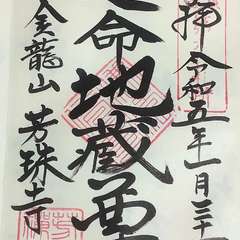 拝 令和五年一月三十
命地蔵尊
金龍山 芳珠寺